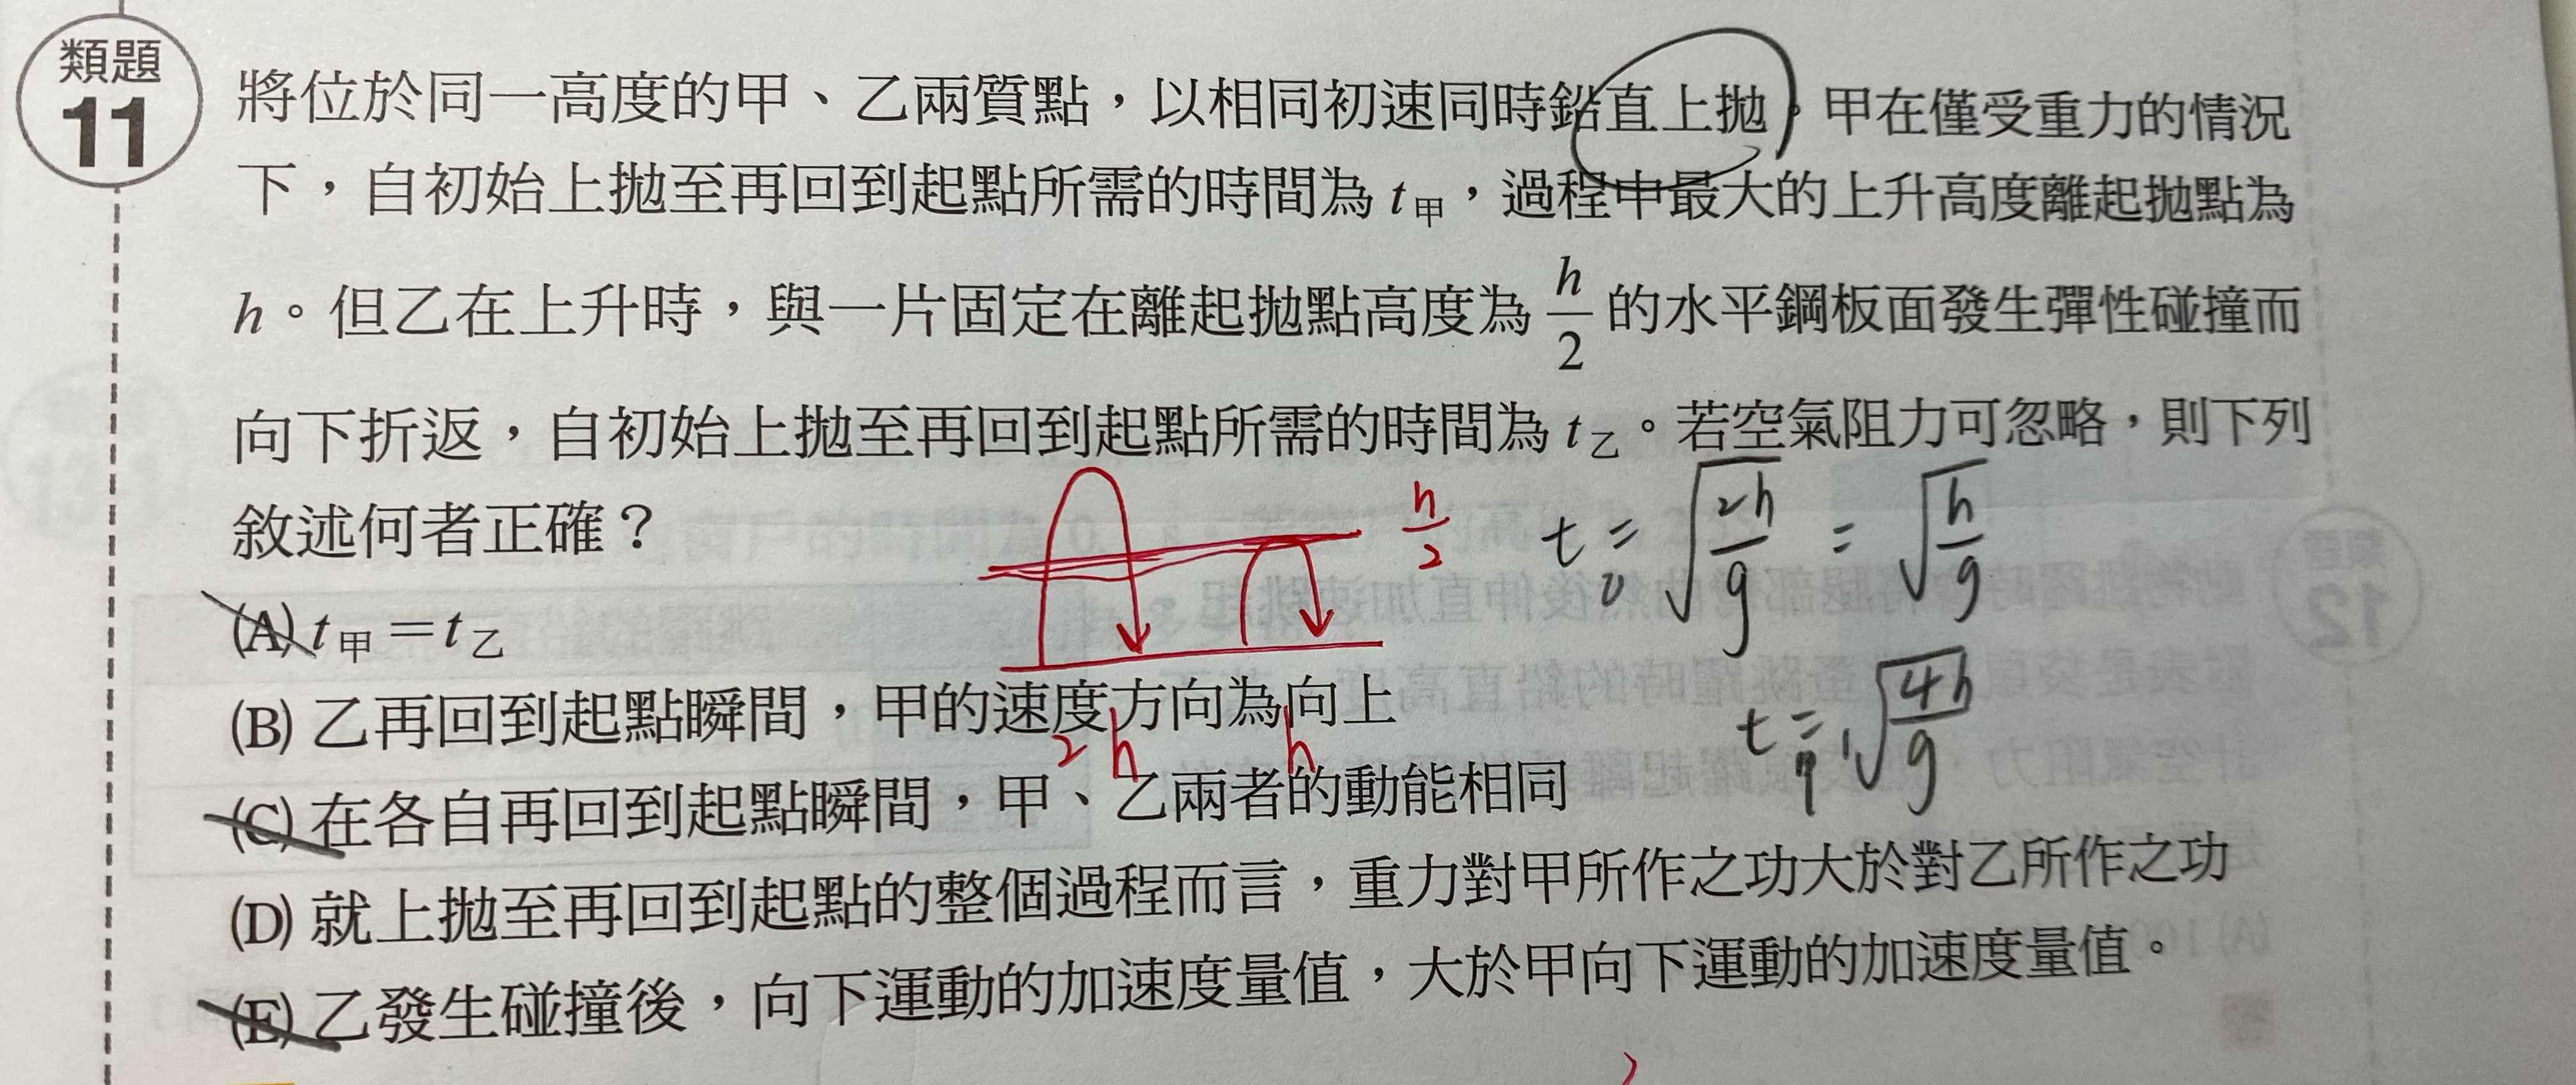 類題
11
將位於同一高度的甲、乙兩質點，以相同初速同時鉛直上拋。甲在僅受重力的情況
下，自初始上拋至再回到起點所需的時間為 t甲，過程中最大的上升高度離起拋點為
h。但乙在上升時，與一片固定在離起拋點高度為 h/2 的水平鋼板面發生彈性碰撞而
向下折返，自初始上拋至再回到起點所需的時間為 t乙。若空氣阻力可忽略，則下列
敘述何者正確？
h/2
t = √(2h/g) = √(h/g)
(A) t甲＝t乙
(B) 乙再回到起點瞬間，甲的速度方向為向上
2h h
t = √(4h/g)
(C) 在各自再回到起點瞬間，甲、乙兩者的動能相同
(D) 就上拋至再回到起點的整個過程而言，重力對甲所作之功大於對乙所作之功
(E) 乙發生碰撞後，向下運動的加速度量值，大於甲向下運動的加速度量值。
12